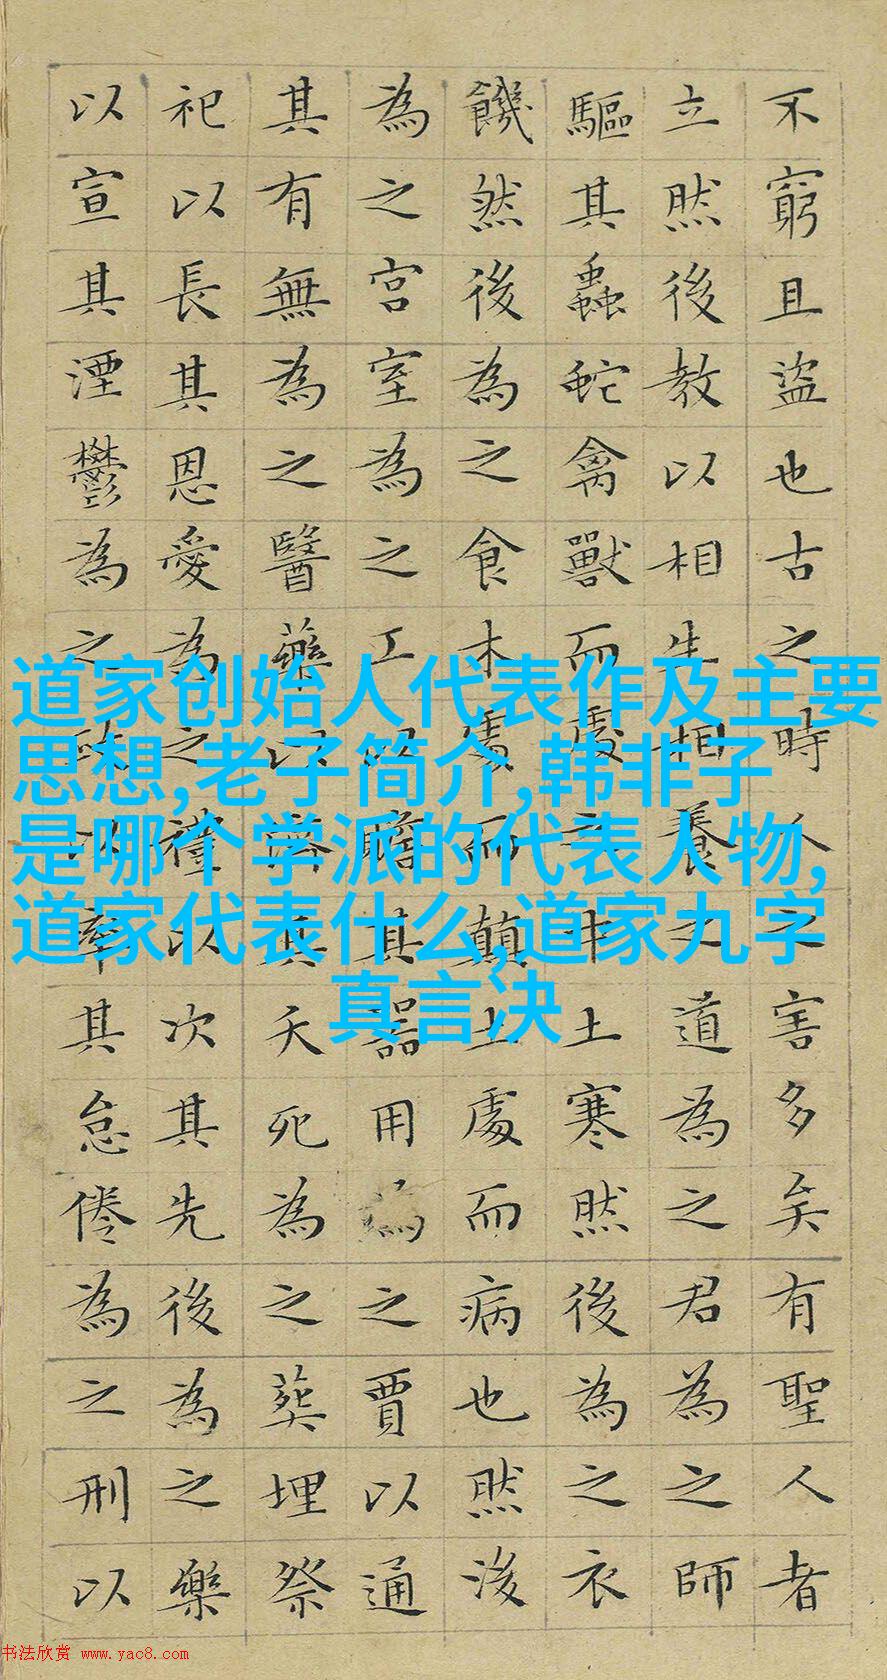 不窮且盜也古之時人之害多矣有聖人者
立然後教以相生相養之道為之君為之師
驅其蟲蛇禽獸而處之中土寒然後為之衣
饑然後為之食木處而顛土處而病也然後
為之宮室為之工以贍其器用為之賈以通
其有無為之醫藥以濟其夭死為之葬埋祭
祀以長其恩愛為之禮以次其先後為之樂
以宣其湮鬱為之政以率其怠倦為之刑以
道家创始人代表作及主要
思想,老子简介,韩非子
是哪个学派的代表人物,
道家代表什么,道家九字
真言决
书法欣赏 www.yac8.com